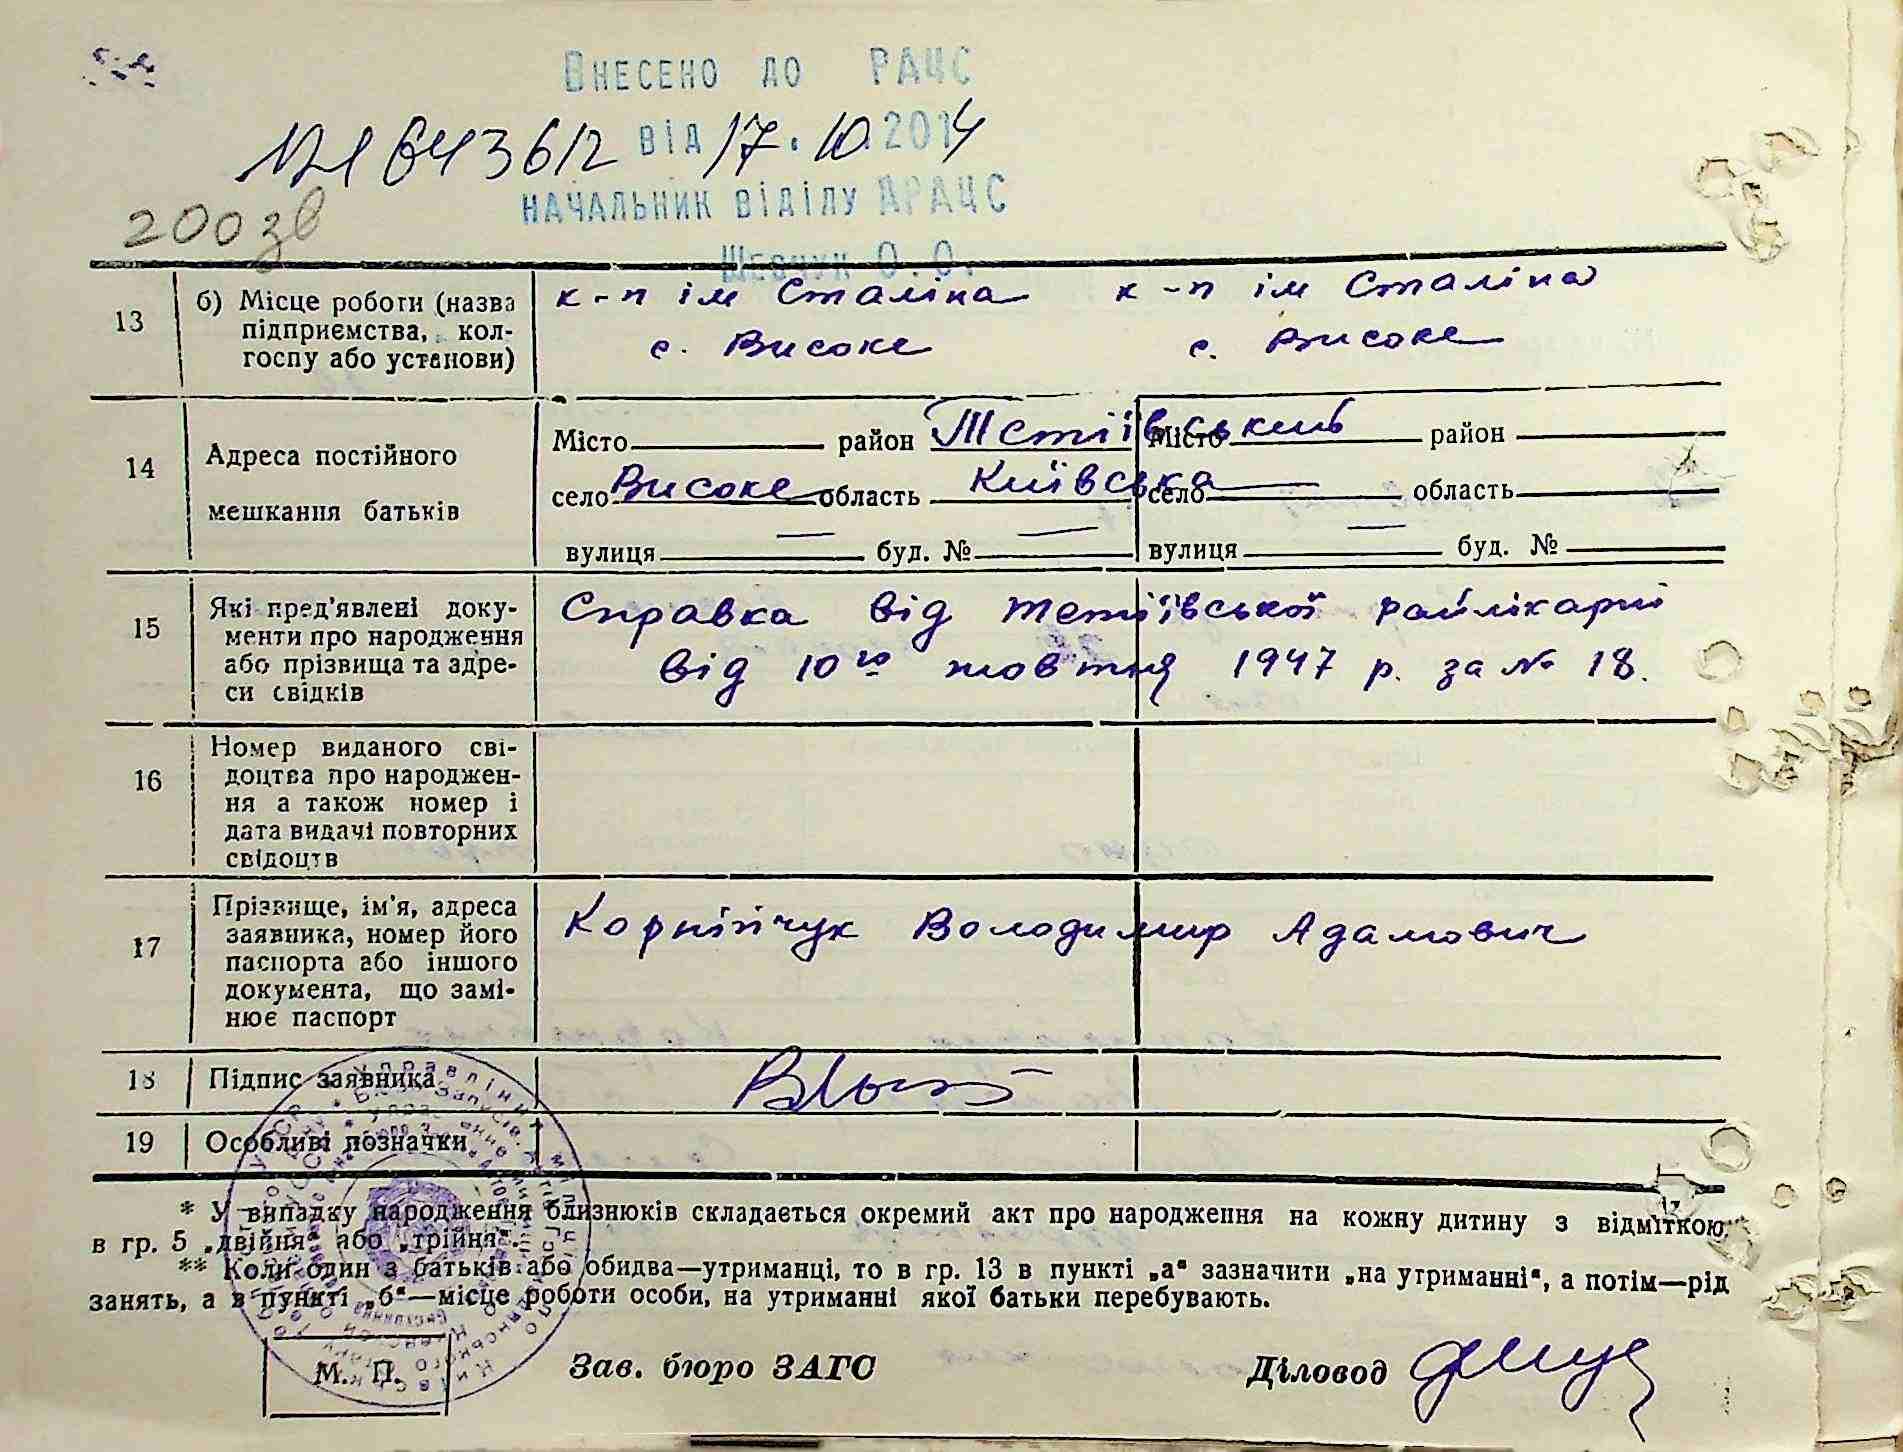 Внесено до РАЦС
643612 від 17.10.2014
начальник відділу ДРАЦС
Шевчук О.О.
200 зв
13
б) Місце роботи (назва
підприємства, кол-
госпу або установи)
к-п ім Сталіна к-п ім Сталіна
с. Високе с. Високе
14
Адреса постійного
мешкання батьків
Місто район Тетіївський Місто район
село Високе область Київська село область
вулиця — буд. № — вулиця — буд. №
15
Які пред'явлені доку-
менти про народження
або прізвища та адре-
си свідків
Справка від Тетіївської райлікарні
від 10го жовтня 1947 р. за № 18.
16
Номер виданого сві-
доцтва про народжен-
ня а також номер і
дата видачі повторних
свідоцтв
17
Прізвище, ім'я, адреса
заявника, номер його
паспорта або іншого
документа, що замі-
нює паспорт
Корнійчук Володимир Адамович
18 Підпис заявника
19 Особливі позначки
* У випадку народження близнюків складається окремий акт про народження на кожну дитину з відміткою
в гр. 5 „двійня“ або „трійня“.
** Коли один з батьків або обидва—утриманці, то в гр. 13 в пункті „а“ зазначити „на утриманні“, а потім—рід
занять, а в пункті „б“—місце роботи особи, на утриманні якої батьки перебувають.
М. П. Зав. бюро ЗАГС Діловод